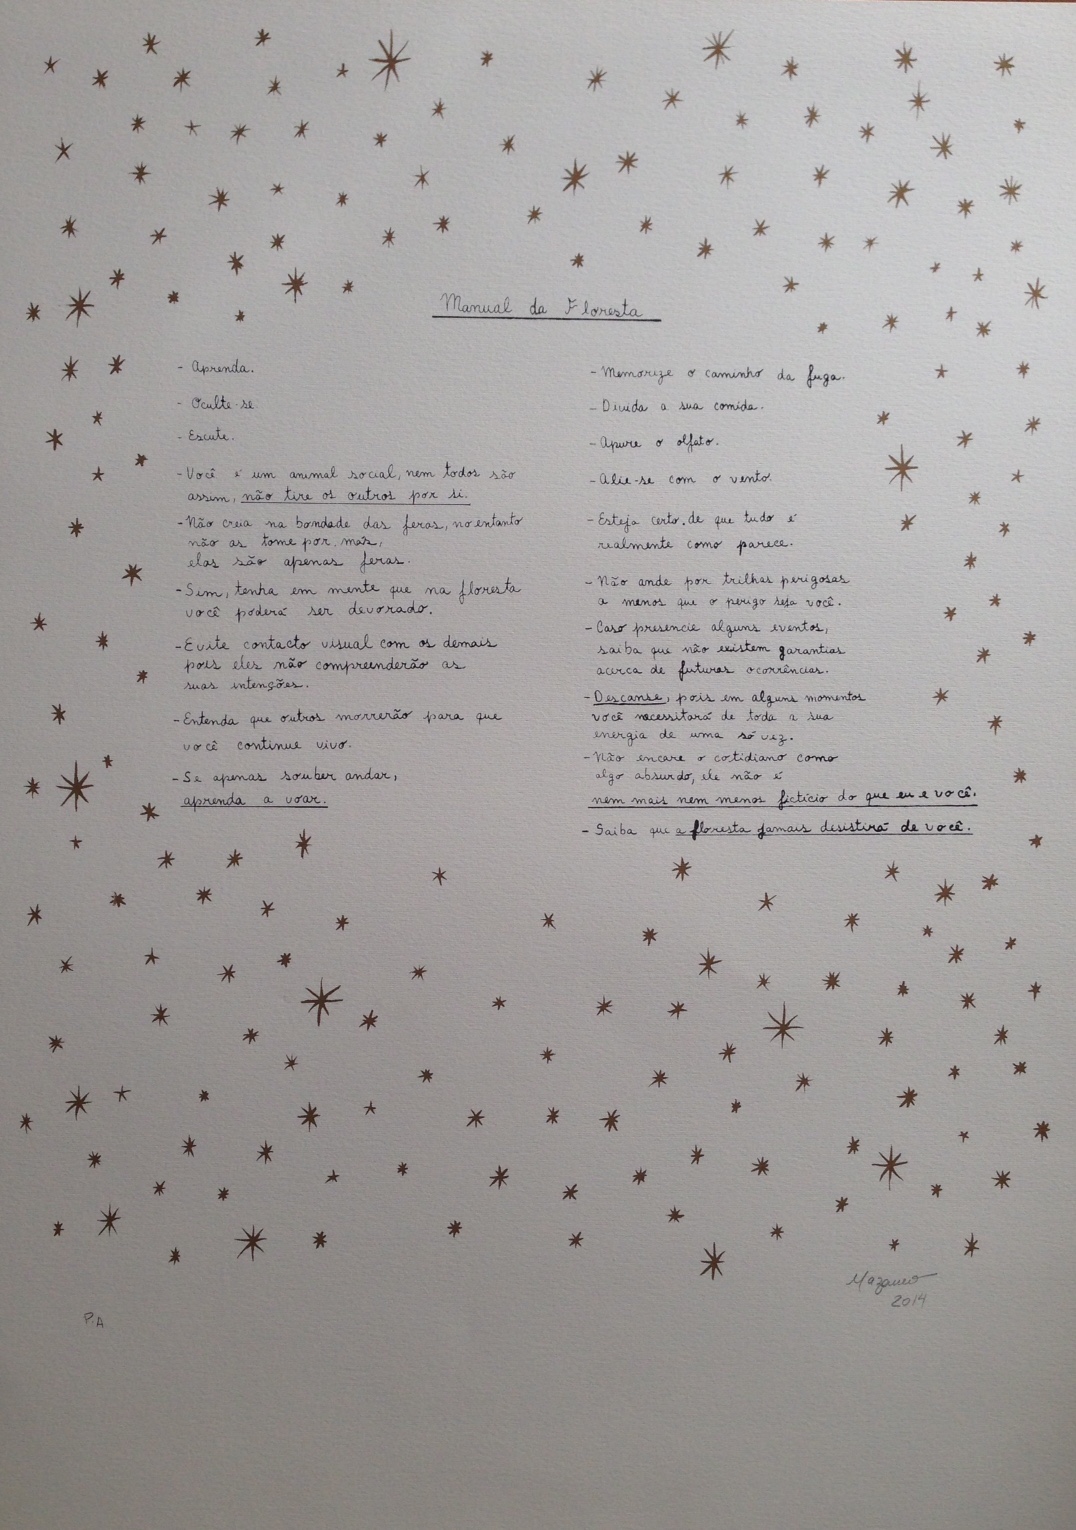 Manual da Floresta
- Aprenda.
- Oculte-se.
- Escute.
- Você é um animal social, nem todos são
assim, não tire os outros por si.
- Não creia na bondade das feras, no entanto
não as tome por más,
elas são apenas feras.
- Sim, tenha em mente que na floresta
você poderá ser devorado.
- Evite contacto visual com os demais
pois eles não compreenderão as
suas intenções.
- Entenda que outros morrerão para que
você continue vivo.
- Se apenas souber andar,
aprenda a voar.
- Memorize o caminho da fuga.
- Divida a sua comida.
- Apure o olfato.
- Alie-se com o vento.
- Esteja certo de que tudo é
realmente como parece.
- Não ande por trilhas perigosas
a menos que o perigo seja você.
- Caso presencie alguns eventos,
saiba que não existem garantias
acerca de futuras ocorrências.
- Descanse, pois em alguns momentos
você necessitará de toda a sua
energia de uma só vez.
- Não encare o cotidiano como
algo absurdo, ele não é
nem mais nem menos fictício do que eu e você.
- Saiba que a floresta jamais desistirá de você.
2014
P.A